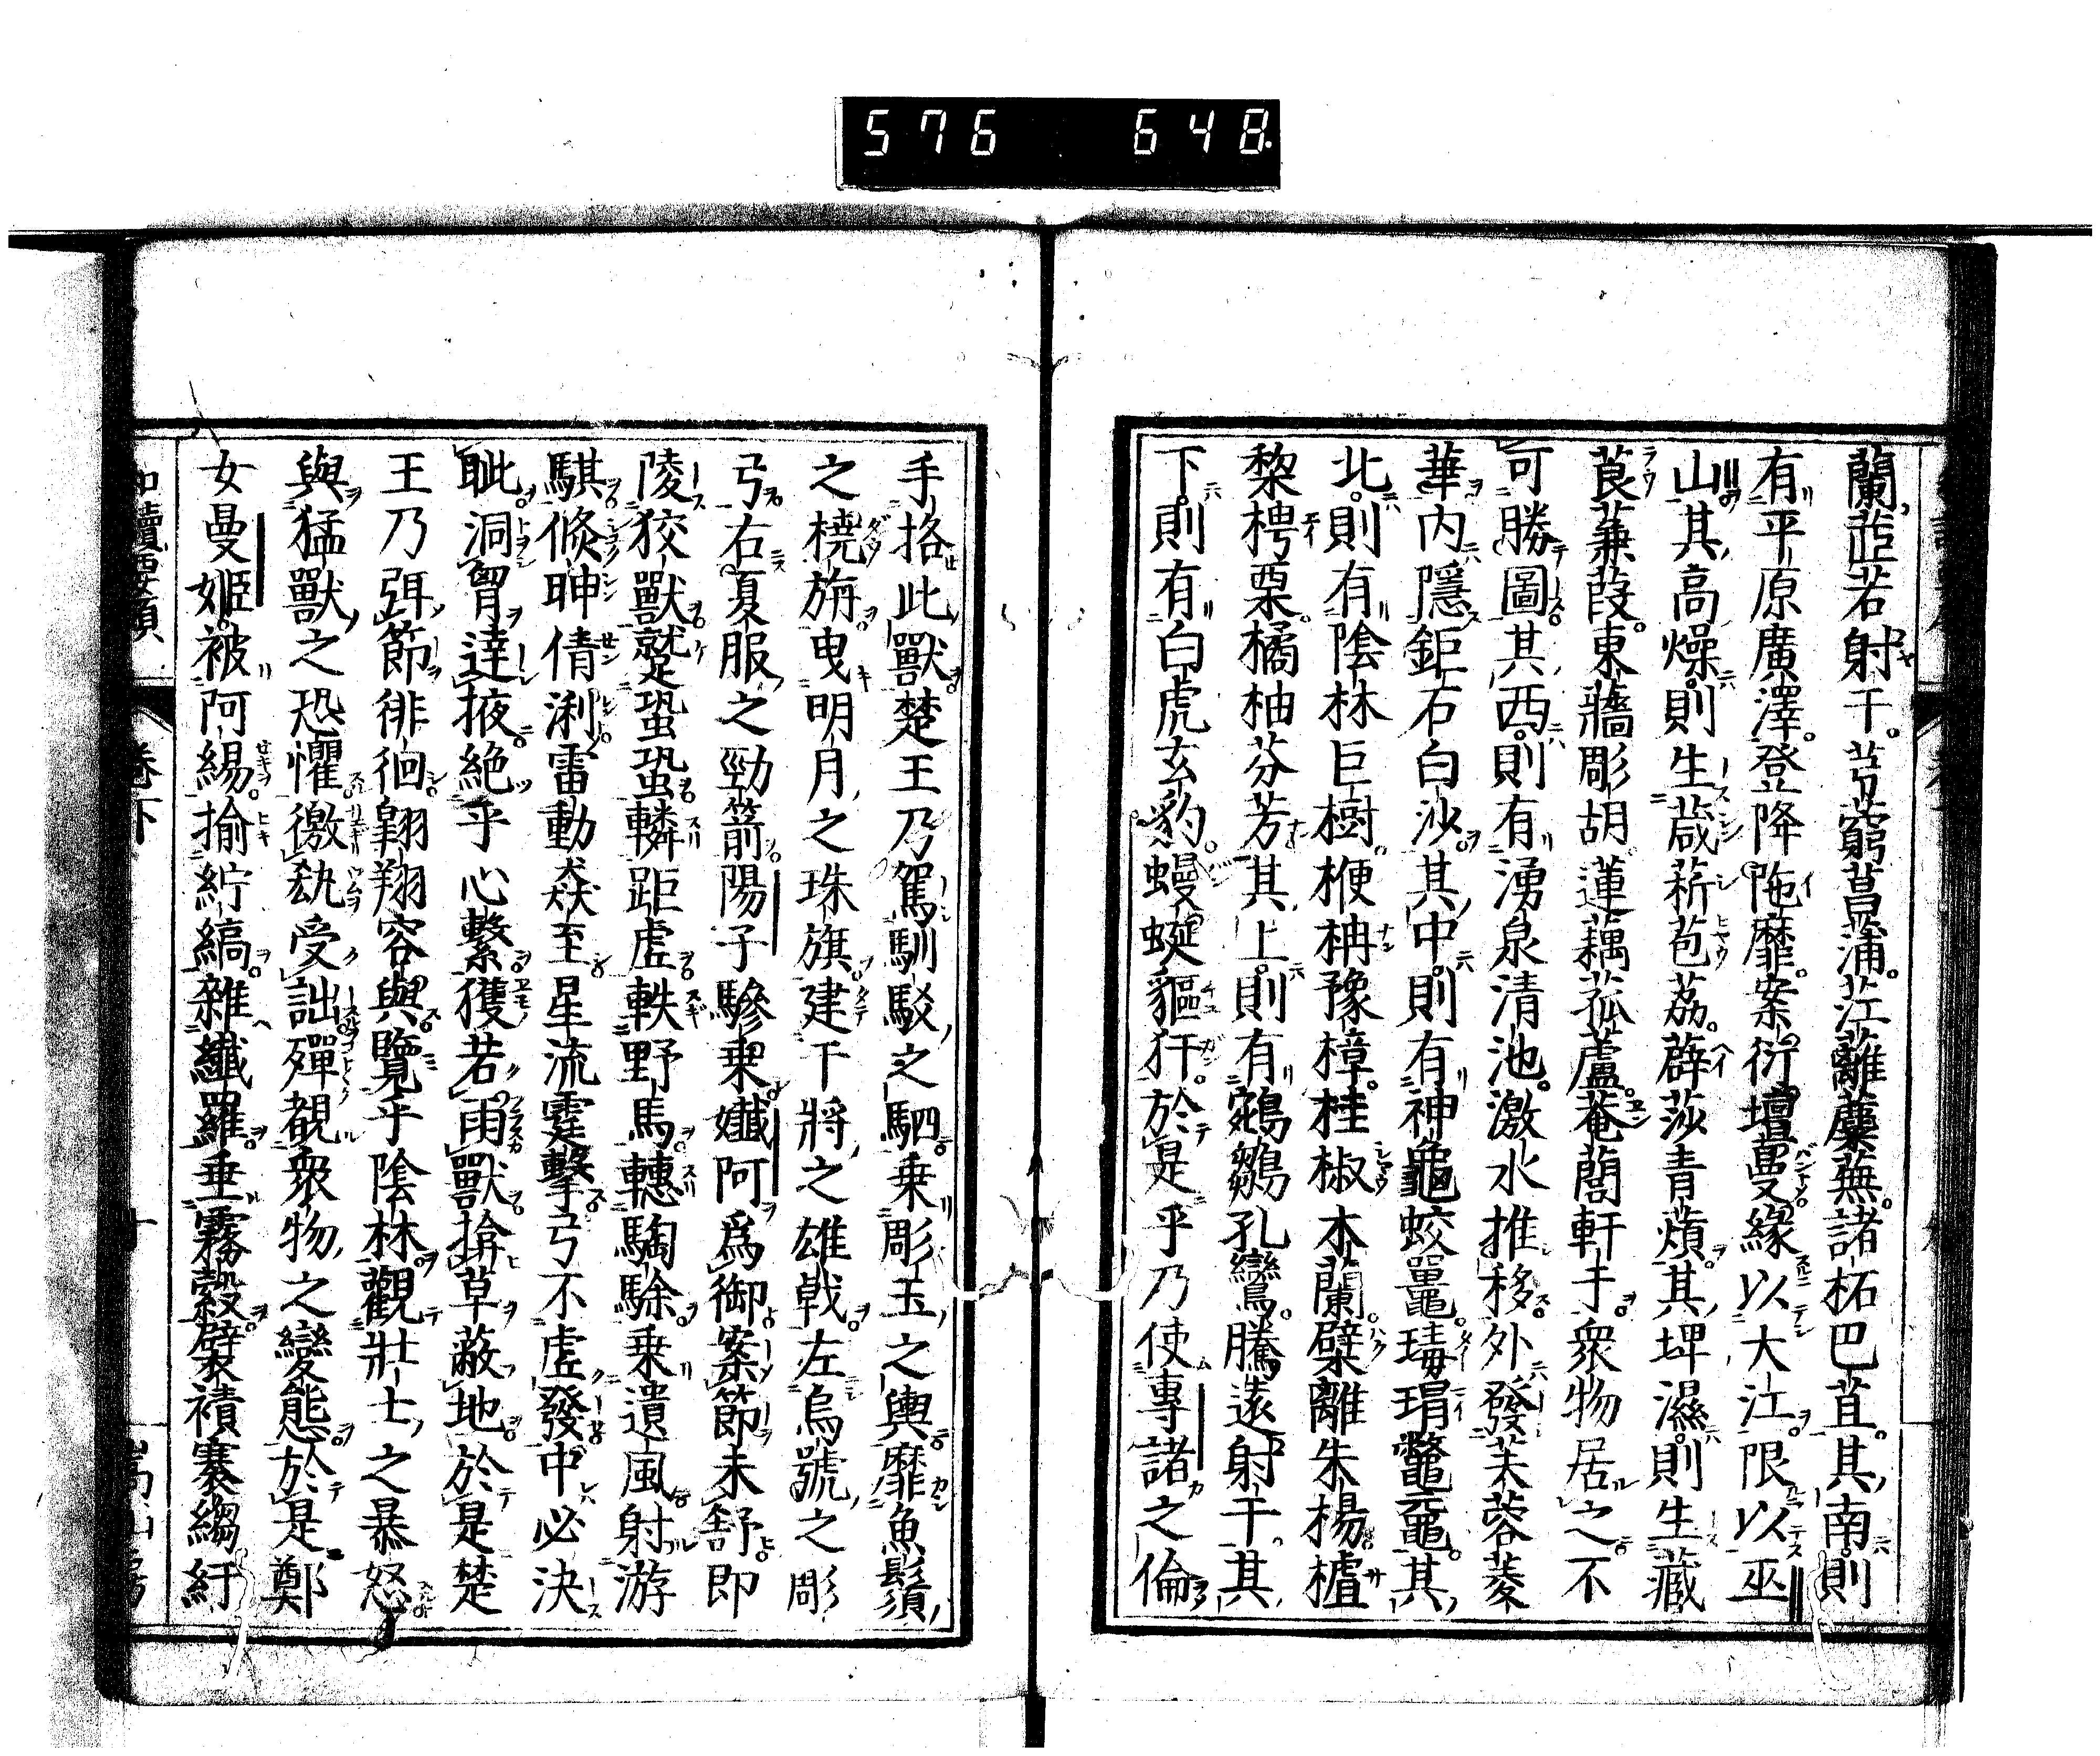 576 648
蘭茝若射干。芎藭菖蒲。茳蘺麋蕪。諸柘巴苴。其南則
有平原廣澤。登降陁靡。案衍壇曼。緣以大江。限以巫
山。其高燥則生葴菥苞荔。薜莎青薠。其埤濕則生藏
莨蒹葭。東蘠彫胡。蓮藕菰蘆。菴䕡軒于。衆物居之。不
可勝圖。其西則有湧泉清池。激水推移。外發芙蓉菱
華。內隱鉅石白沙。其中則有神龜蛟鼉。瑇瑁鼈黿。其
北則有陰林巨樹。楩柟豫樟。桂椒木蘭。檗離朱楊。樝
棃梬栗。橘柚芬芳。其上則有鵷鶵孔鸞。騰遠射干。其
下則有白虎玄豹。蟃蜒貙犴。於是乎乃使專諸之倫
手挌此獸。楚王乃駕馴駮之駟。乘彫玉之輿。靡魚鬚
之橈旃。曳明月之珠旗。建干將之雄戟。左烏號之彫
弓。右夏服之勁箭。陽子驂乘。孅阿爲御。案節未舒。即
陵狡獸。蹵蛩蛩。轔距虛。軼野馬。轊騊駼。乘遺風。射游
騏。倏眒倩浰。雷動猋至。星流霆擊。弓不虛發。中必決
眦。洞胷達掖。絕乎心繫。獲若雨獸。揜草蔽地。於是楚
王乃弭節徘徊。翺翔容與。覽乎陰林。觀壯士之暴怒。
與猛獸之恐懼。徼𠊬受詘。殫覩衆物之變態。於是鄭
女曼姬。被阿緆。揄紵縞。雜纖羅。垂霧縠。襞襀褰縐。紆
卷下